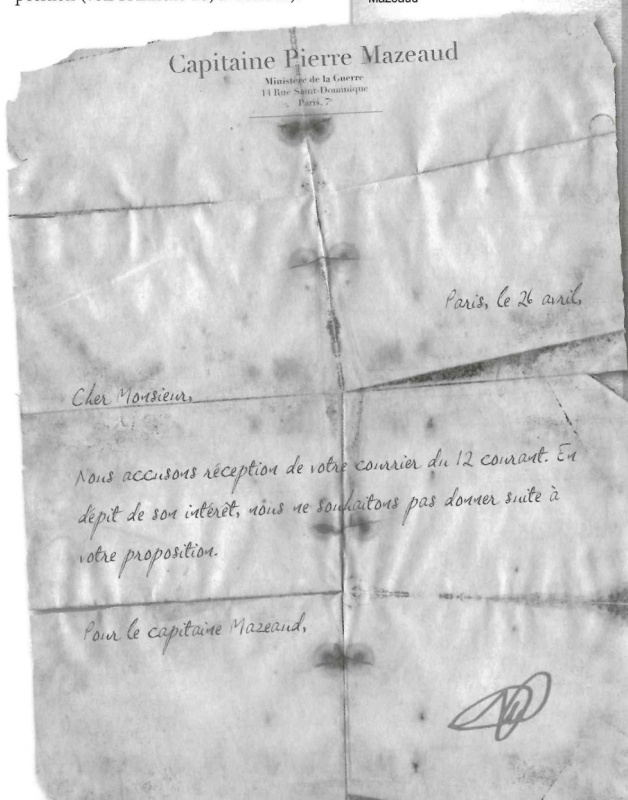 Mazeaud
Capitaine Pierre Mazeaud
Ministère de la Guerre
14 Rue Saint-Dominique
Paris, 7ᵉ
Paris, le 26 avril,
Cher Monsieur,
Nous accusons réception de votre courrier du 12 courant. En
dépit de son intérêt, nous ne souhaitons pas donner suite à
votre proposition.
Pour le capitaine Mazeaud,